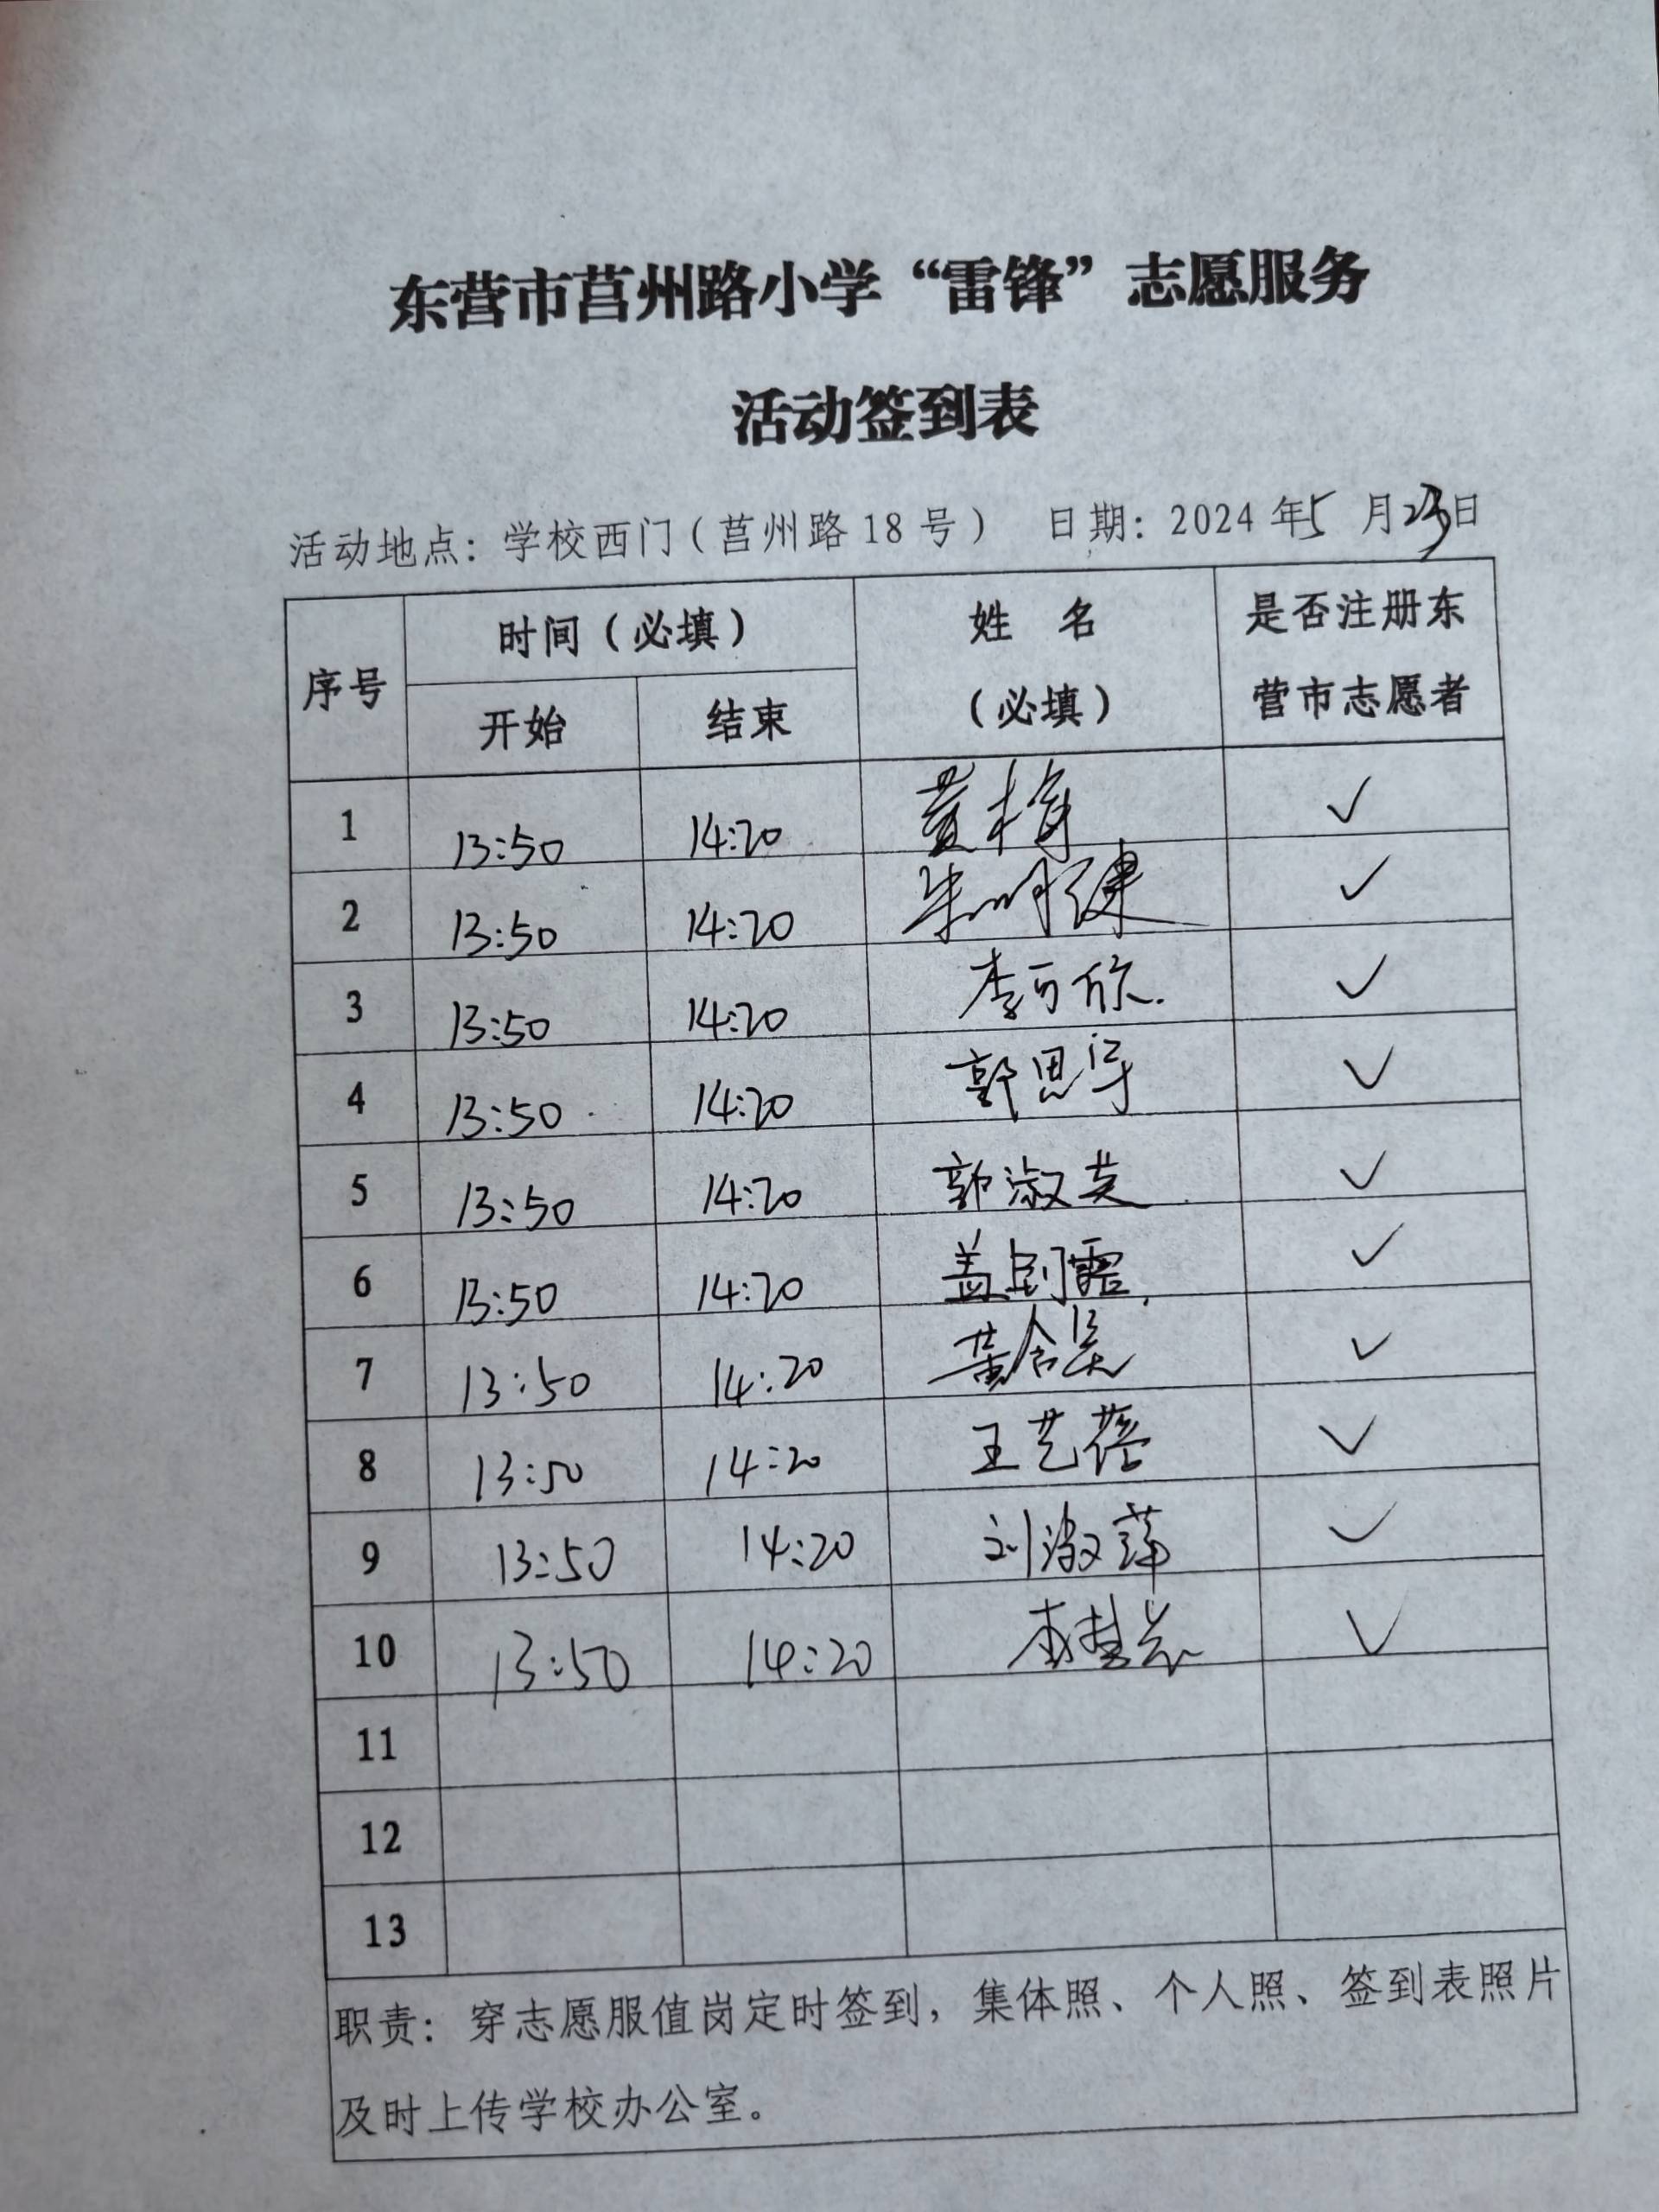 东营市莒州路小学“雷锋”志愿服务
活动签到表
活动地点：学校西门（莒州路18号） 日期：2024年5月23日
序号 时间（必填） 姓 名（必填） 是否注册东营市志愿者
开始 结束
1 13:50 14:20 黄梅 ✓
2 13:50 14:20 朱明健 ✓
3 13:50 14:20 李可欣. ✓
4 13:50 14:20 郭思宇 ✓
5 13:50 14:20 郭淑英 ✓
6 13:50 14:20 盖 ✓
7 13:50 14:20 黄含 ✓
8 13:50 14:20 王艺蓓 ✓
9 13:50 14:20 刘淑萍 ✓
10 13:50 14:20 ✓
11
12
13
职责：穿志愿服值岗定时签到，集体照、个人照、签到表照片
及时上传学校办公室。